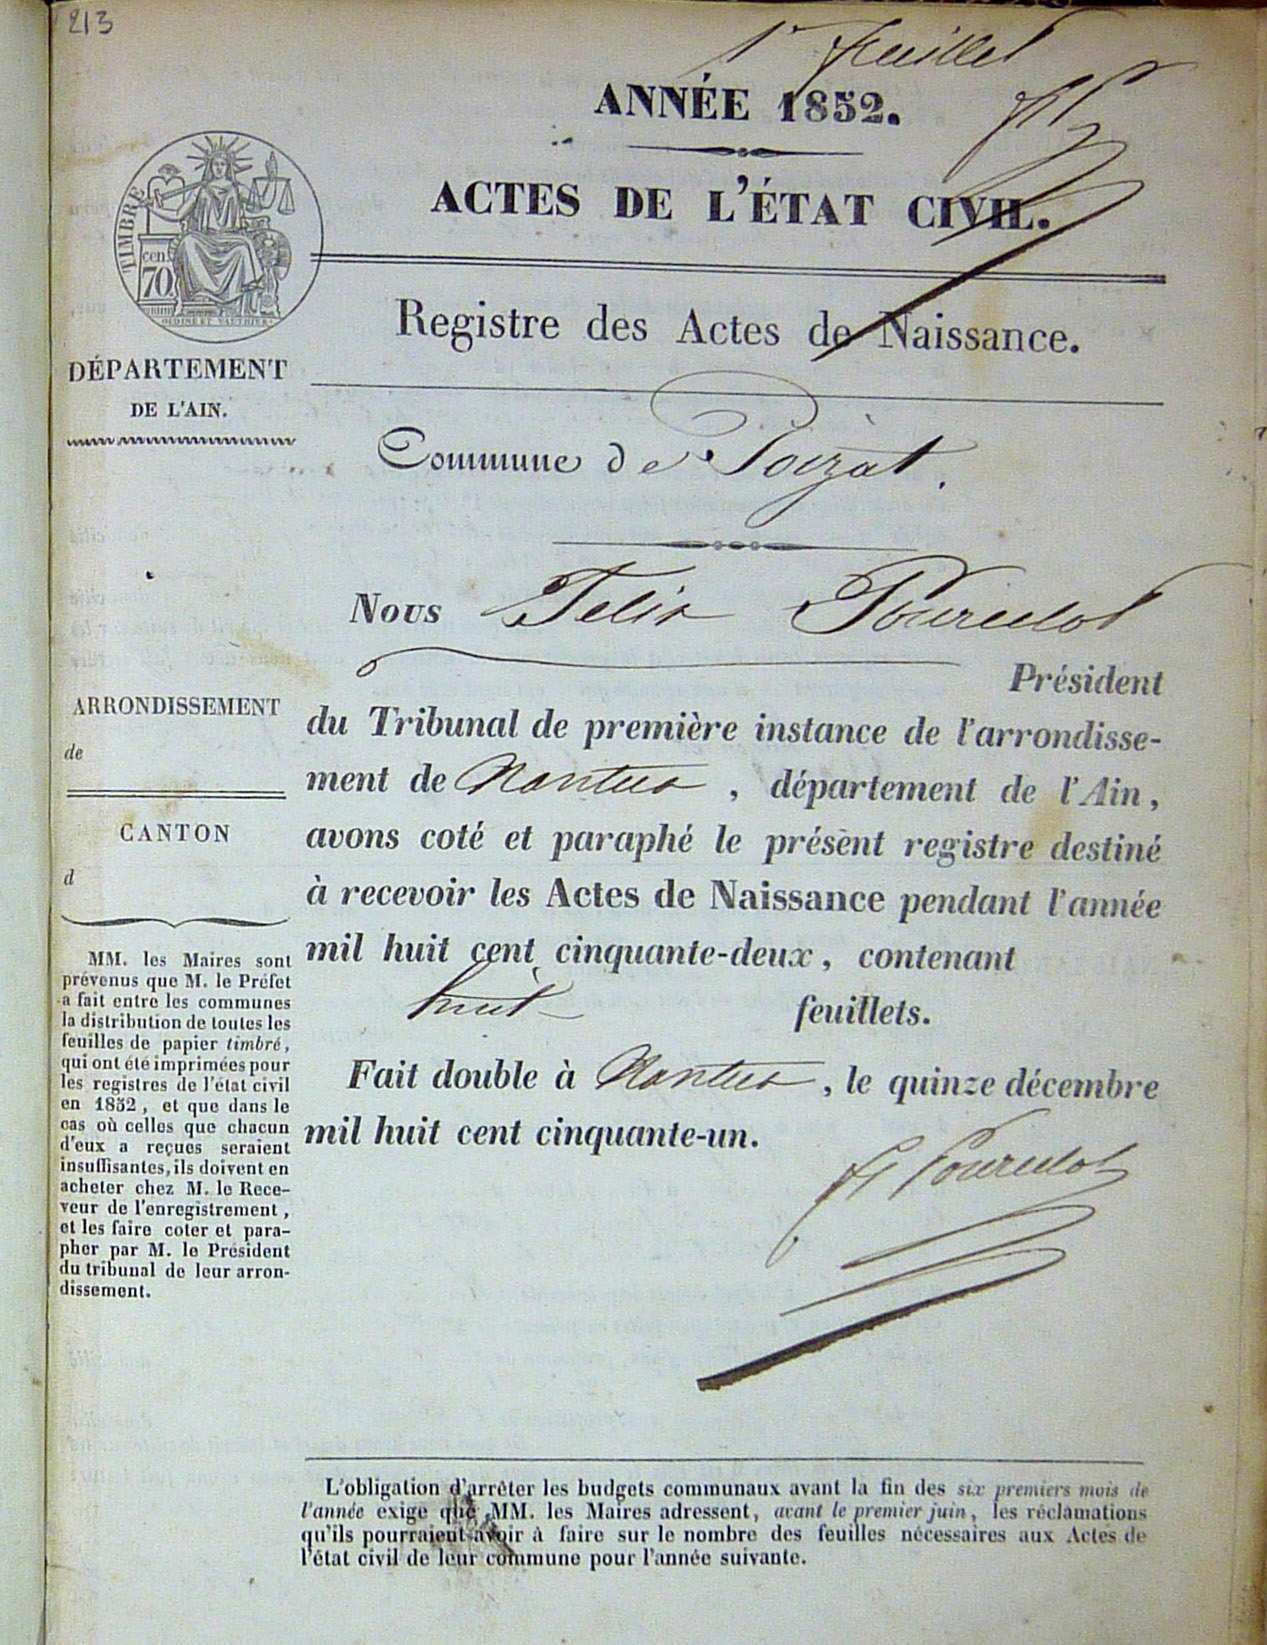 213
1r feuillet
ANNÉE 1852.
ACTES DE L'ÉTAT CIVIL.
TIMBRE
cen.
70
Registre des Actes de Naissance.
DÉPARTEMENT
DE L'AIN.
Commune de Poizat.
Nous Felix Pourcelot
Président
ARRONDISSEMENT
de
CANTON
d
du Tribunal de première instance de l'arrondisse-
ment de Nantua, département de l'Ain,
avons coté et paraphé le présent registre destiné
à recevoir les Actes de Naissance pendant l'année
mil huit cent cinquante-deux, contenant
huit feuillets.
Fait double à Nantua, le quinze décembre
mil huit cent cinquante-un.
MM. les Maires sont
prévenus que M. le Préfet
a fait entre les communes
la distribution de toutes les
feuilles de papier timbré,
qui ont été imprimées pour
les registres de l'état civil
en 1852, et que dans le
cas où celles que chacun
d'eux a reçues seraient
insuffisantes, ils doivent en
acheter chez M. le Rece-
veur de l'enregistrement,
et les faire coter et para-
pher par M. le Président
du tribunal de leur arron-
dissement.
L'obligation d'arrêter les budgets communaux avant la fin des six premiers mois de
l'année exige que MM. les Maires adressent, avant le premier juin, les réclamations
qu'ils pourraient avoir à faire sur le nombre des feuilles nécessaires aux Actes de
l'état civil de leur commune pour l'année suivante.